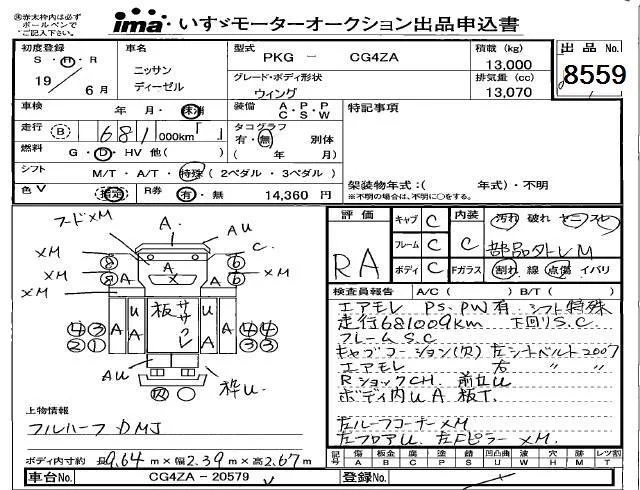 ※赤太枠内は必ず
ボールペンで
ご記入下さい。
ima いすゞモーターオークション出品申込書
初度登録
S・H・R
19 6月
車名
ニッサン
ディーゼル
型式
PKG － CG4ZA
グレード・ボディ形状
ウィング
積載 (kg)
13,000
排気量 (cc)
13,070
出品No.
8559
車検 年・月・抹消
装備 A・P・P
C・S・W
特記事項
走行 B 681 000km
タコグラフ
有・無 別体
( 年 月)
燃料 G・D・HV 他( )
シフト M/T・A/T・特殊 (2ペダル・3ペダル)
色V 指定 R券 有・無 14,360 円
架装物年式:( 年式)・不明
※不明の場合は、不明に○をする。
フードXM
A
AU
C
XM
XM
XM
8 8
6 6
A
A
A
A
U
板
ササクレ
U
A
A
4 3
2 1
4 4
3 3
AU
枠U
上物情報
フルハーフ DMJ
ボディ内寸約 長9.64m×幅2.39m×高2.67m
評価
RA
キャブ C
フレーム C
ボディ C
内装 C
汚れ 破れ ヤニ スレ
部品外レM
Fガラス 割れ 線 点傷 イバリ
検査員報告 A/C ( ) B/T ( )
エアモレ PS.PW有 シフト特殊
走行681009km 下回りS.C
フレームS.C
キャブコーション(欠) 左シートベルト2007
エアモレ 右 〃 〃
RショックCH. 前凹U
ボディ内UA 板T.
左ルーフコーナーXM
左フロアU. 左FピラーXM.
記号 傷 板金 腐 塗 錆 凹凸曲 波 穴 折 跡 レンズ割
A B C P S U W H M T X
車台No. CG4ZA－20579
登録No.